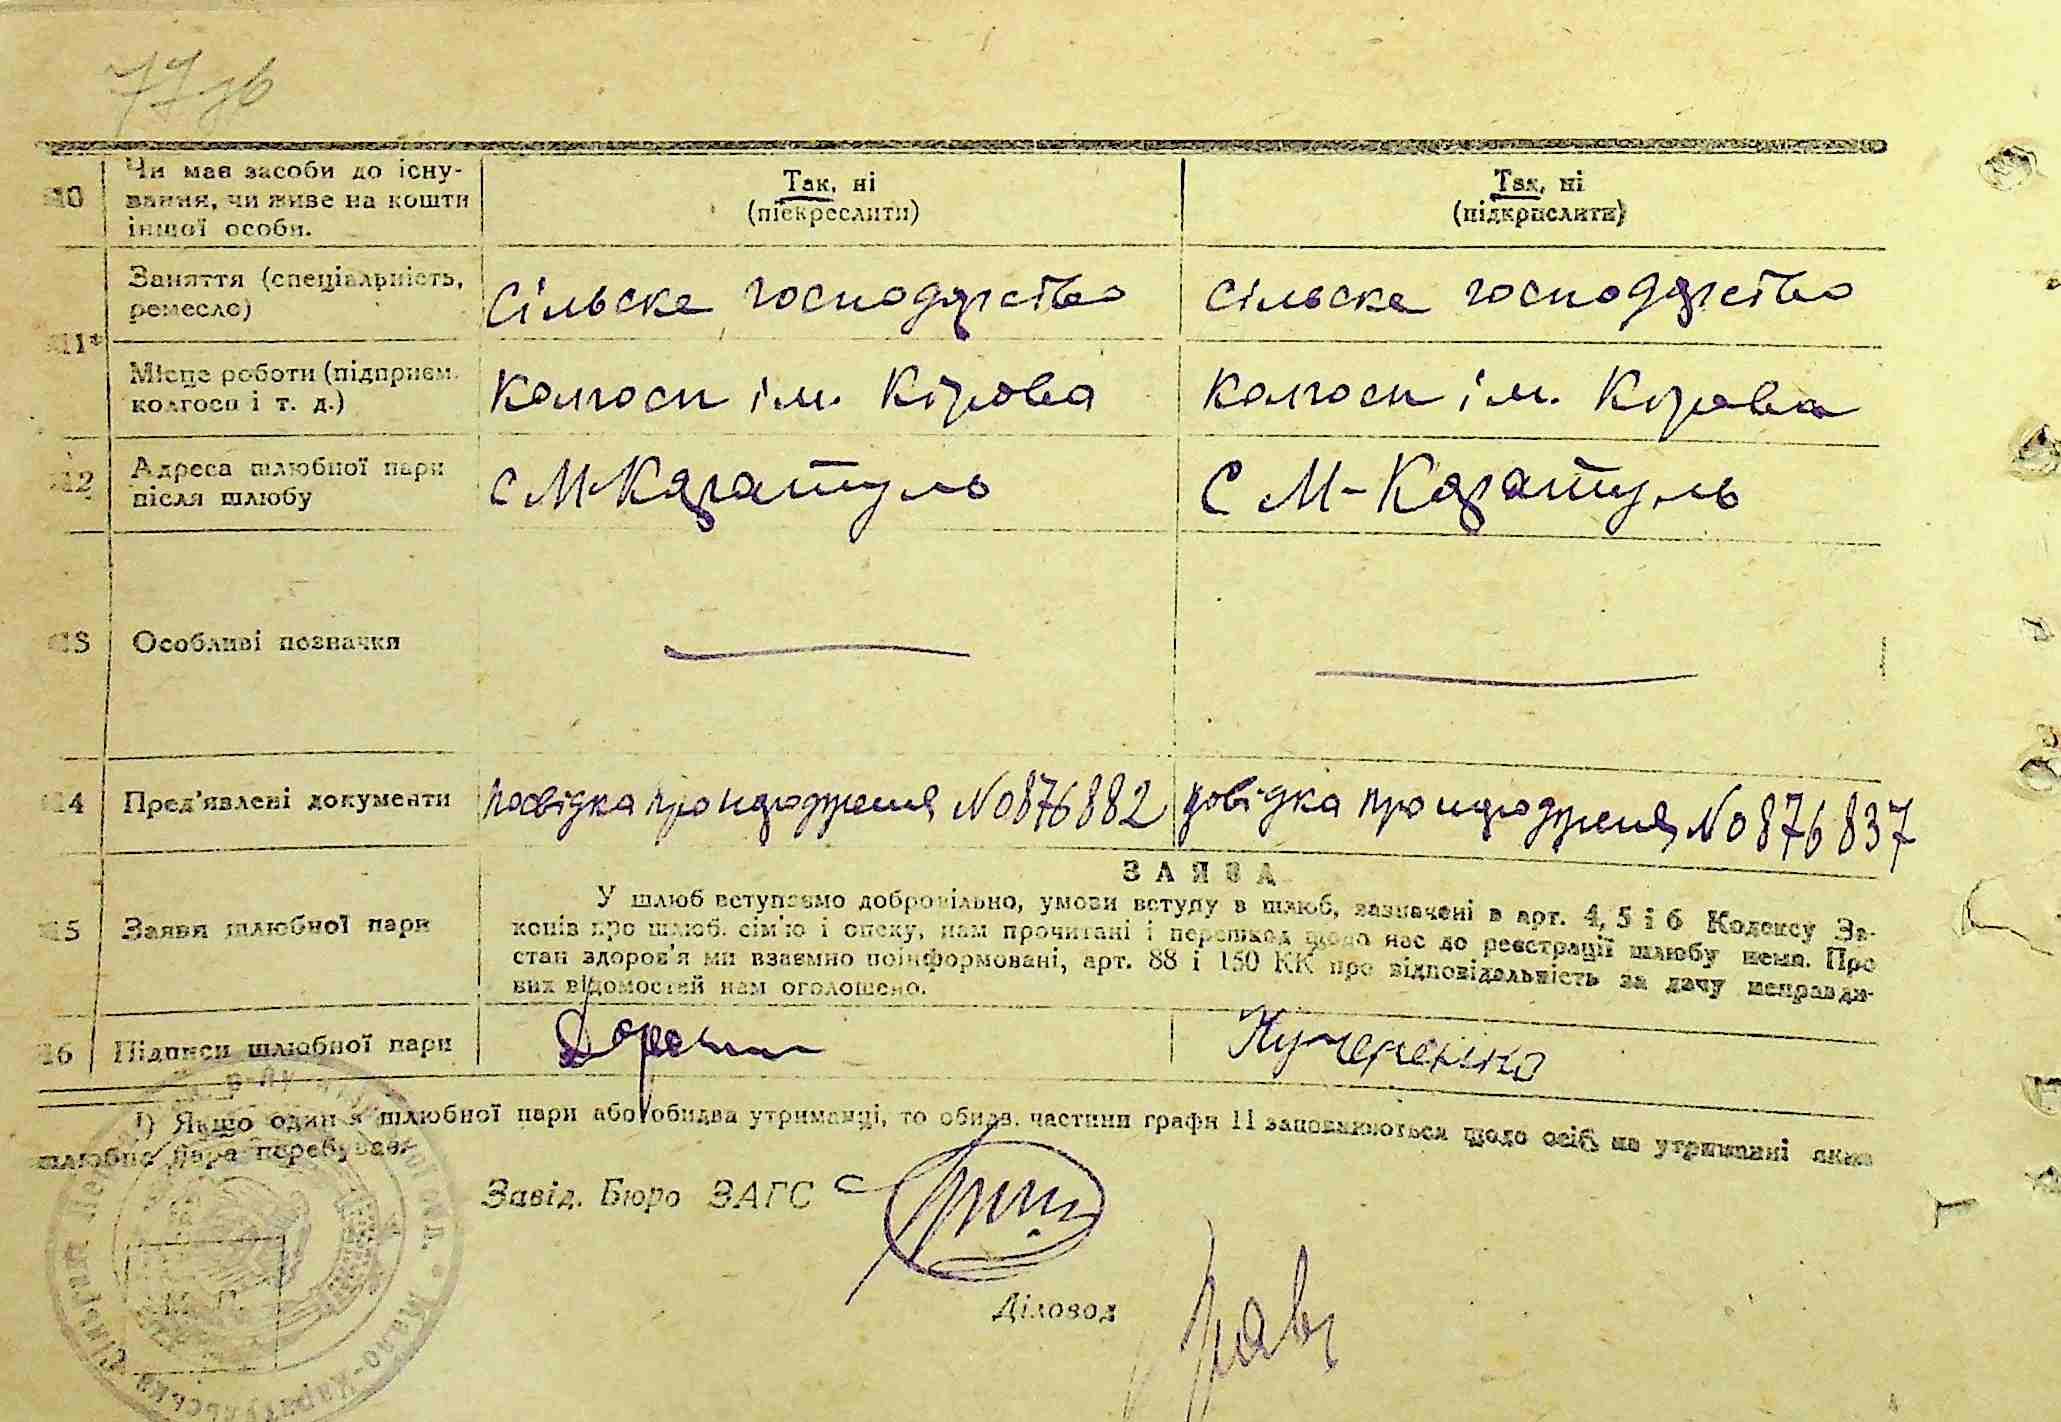 77 зв
10
Чи має засоби до існу-
вання, чи живе на кошти
іншої особи.
Так, ні
(підкреслити)
Так, ні
(підкрислити)
11*
Заняття (спеціальність,
ремесло)
Сільске господарство
Сільске господарство
Місце роботи (підприєм.
колгосп і т. д.)
Колгосп ім. Кірова
Колгосп ім. Кірова
12
Адреса шлюбної пари
після шлюбу
С М-Каратуль
С М-Каратуль
13
Особливі позначки
14
Пред'явлені документи
посвідка про народження №0876882
довідка про народження №0876837
ЗАЯВА
15
Заява шлюбної пари
У шлюб вступаємо добровільно, умови вступу в шлюб, зазначені в арт. 4, 5 і 6 Кодексу За-
конів про шлюб. сім'ю і опеку, нам прочитані і перешкод щодо нас до реєстрації шлюбу нема. Про
стан здоров'я ми взаємно поінформовані, арт. 88 і 150 КК про відповідальність за дачу неправди-
вих відомостей нам оголошено.
16
Підписи шлюбної пари
Кучеренко
1) Якщо один з шлюбної пари або обидва утриманці, то обидв. частини графи 11 заповнюються щодо осіб, на утриманні яких
шлюбна пара перебуває.
Завід. Бюро ЗАГС
Діловод
Мало-Каратульська Сільрада